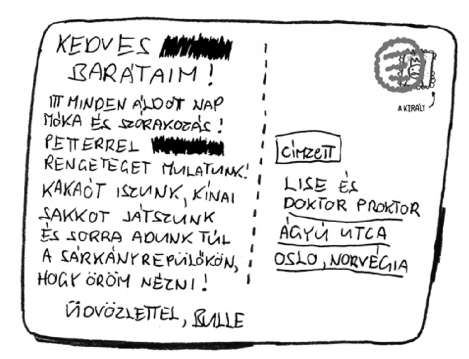 KEDVES
BARÁTAIM!
ITT MINDEN ÁLDOTT NAP
MÓKA ÉS SZÓRAKOZÁS!
PETTERREL
RENGETEGET MULATUNK!
KAKAÓT ISZUNK, KÍNAI
SAKKOT JÁTSZUNK
ÉS SORRA ADUNK TÚL
A SÁRKÁNYREPÜLŐKÖN,
HOGY ÖRÖM NÉZNI!
ÜDVÖZLETTEL, BULLE
A KIRÁLY
CÍMZETT
LISE ÉS
DOKTOR PROKTOR
ÁGYÚ UTCA
OSLO, NORVÉGIA